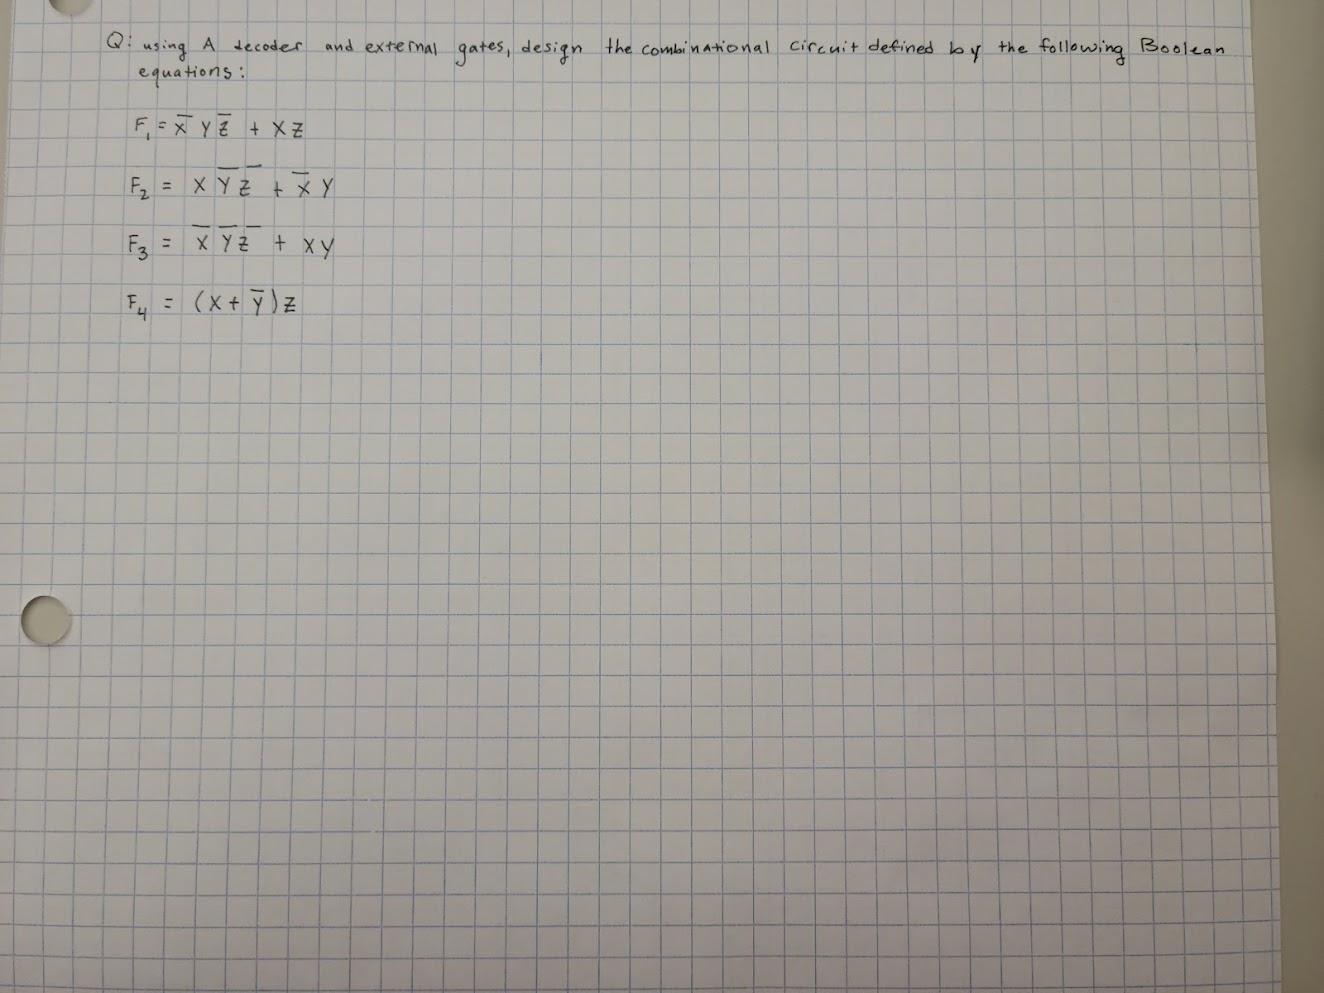 Q: using A decoder and external gates, design the combinational circuit defined by the following Boolean
equations:
F₁ = X̅ Y Z̅ + X Z
F₂ = X Y̅ Z̅ + X̅ Y
F₃ = X̅ Y̅ Z̅ + X Y
F₄ = (X + Y̅) Z